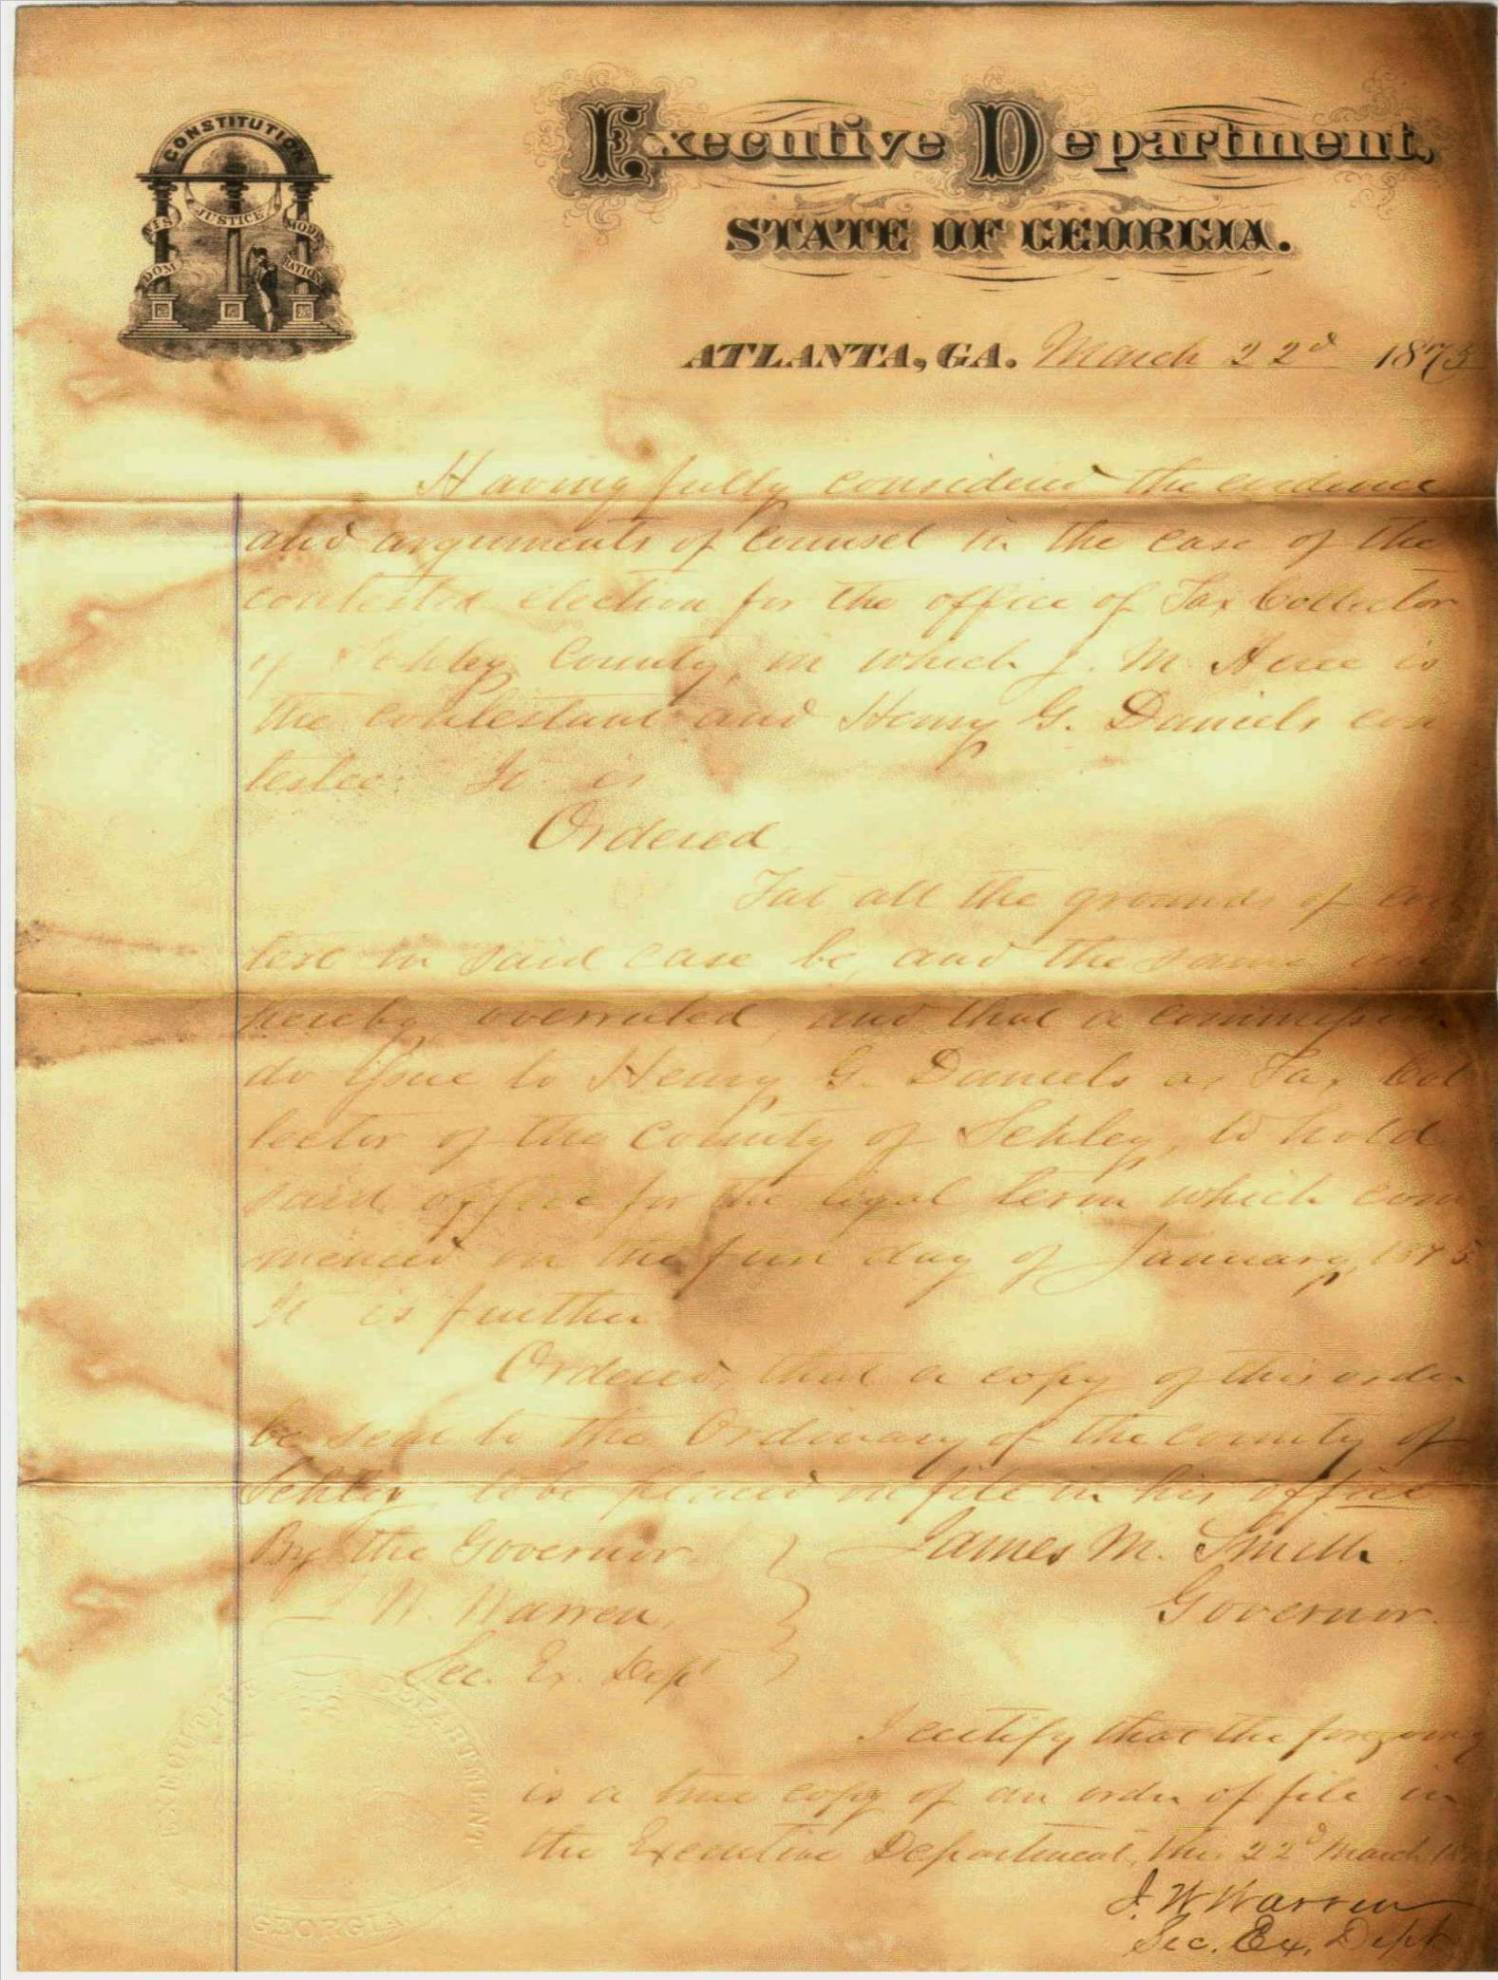 CONSTITUTION
JUSTICE
WIS
DOM
MODE
RATION
Executive Department,
STATE OF GEORGIA.
ATLANTA, GA. March 22d 1875
Having fully considered the evidence
and arguments of Counsel in the case of the
contested election for the office of Tax Collector
of Schley County, in which J. M. is
the contestant and Henry G. Daniels con
testee: It is
Ordered
That all the grounds of con
test in said case be, and the same are
hereby overruled, and that a commission
do issue to Henry G. Daniels as Tax Col
lector of the County of Schley, to hold
said office for the legal term which com
menced on the first day of January 1875
It is further
Ordered, that a copy of this order
be sent to the Ordinary of the county of
Schley to be placed on file in his office
By the Governor James M. Smith
J. W. Warren, Governor.
Sec. Ex. Dept
I certify that the foregoing
is a true copy of an order of file in
the Executive Department, this 22d March
J. W. Warren
Sec. Ex. Dept
EXECUTIVE DEPARTMENT
GEORGIA